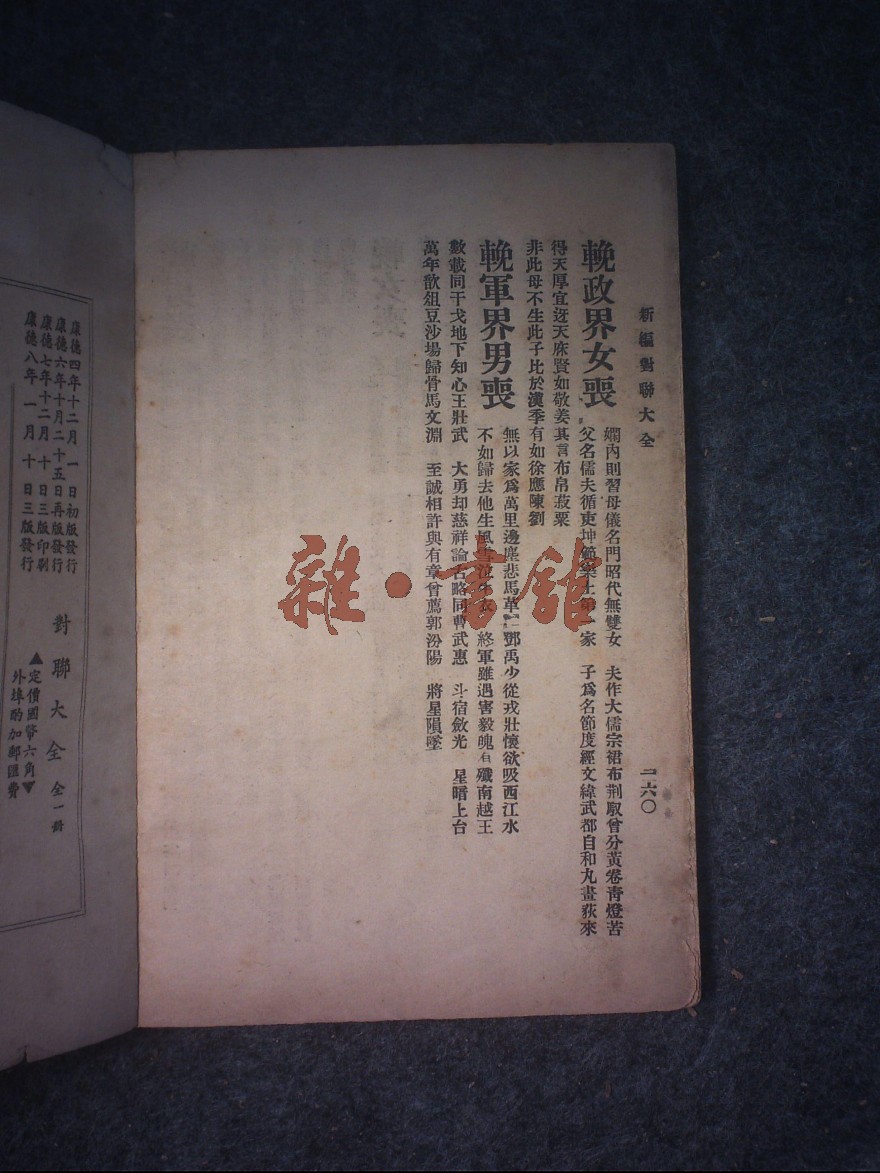 新編對聯大全
一六〇
輓政界女喪
嫺內則習母儀名門昭代無雙女　夫作大儒宗裙布荆釵曾分黃卷靑燈苦
父名儒夫循吏坤範樂土第一家　子爲名節度經文緯武都自和丸畫荻來
得天厚宜迓天庥賢如敬姜其言布帛菽粟
非此母不生此子比於漢季有如徐應陳劉
輓軍界男喪
無以家爲萬里邊塵悲馬革　鄧禹少從戎壯懷欲吸西江水
不如歸去他生風雪泣牛衣　終軍雖遇害毅魄有殲南越王
數載同干戈地下知心王壯武　大勇却慈祥論古略同曹武惠　斗宿斂光　星暗上台
萬年歆俎豆沙場歸骨馬文淵　至誠相許與有章曾薦郭汾陽　將星隕墜
雜·書館
康德四年十二月一日初版發行
康德六年十月二十五日再版發行
康德七年十二月十日三版印刷
康德八年一月十日三版發行
對聯大全 全一册
▲定價國幣六角▼
外埠酌加郵匯費